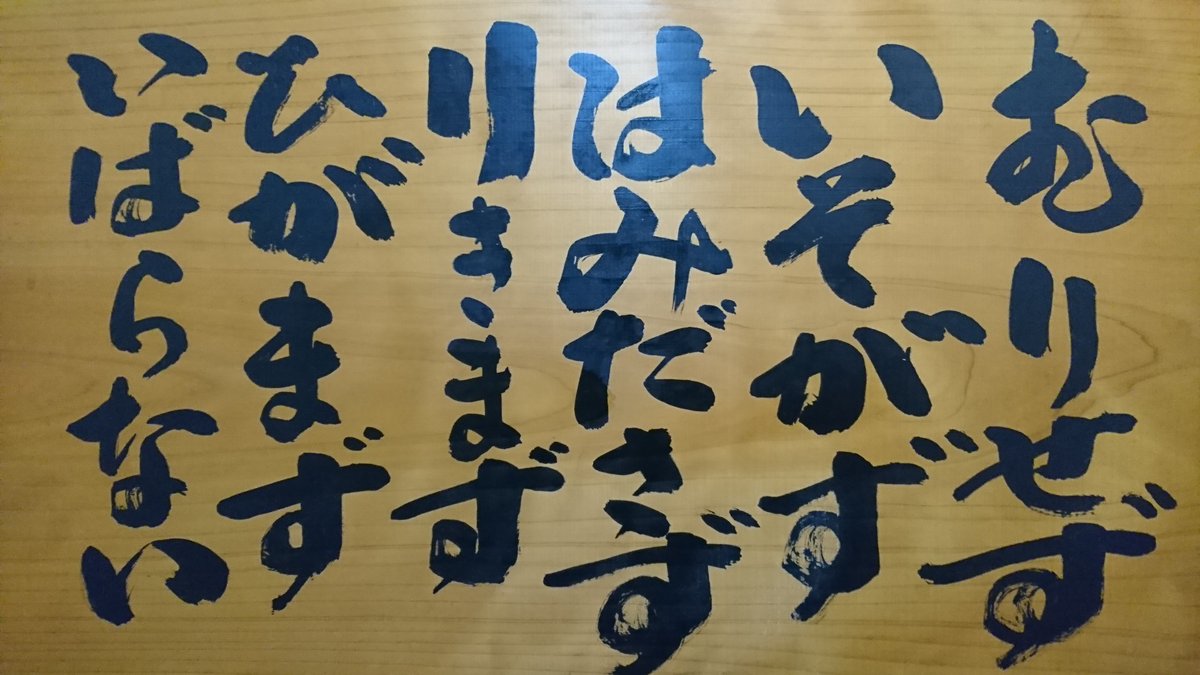 むりせず
いそがず
はみださず
りきまず
ひがまず
いばらない